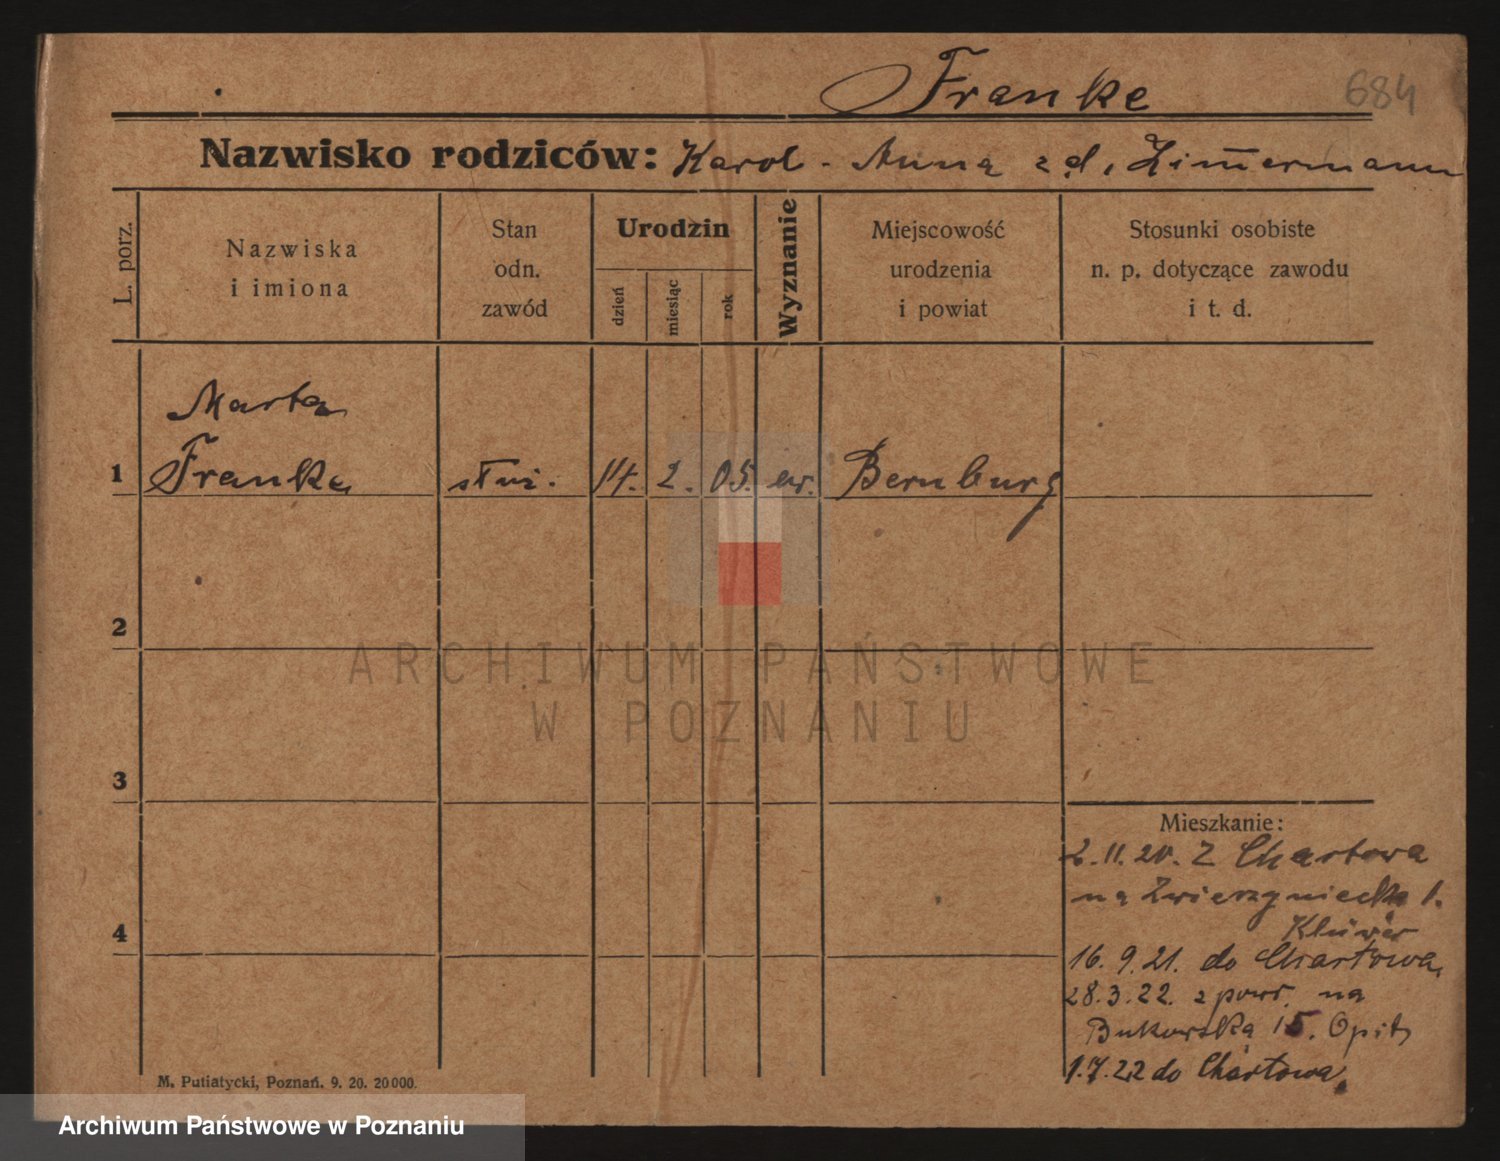 Franke 684
Nazwisko rodziców: Karol - Anna z d. Zimermann
L. porz.
Nazwiska
i imiona
Stan
odn.
zawód
Urodzin
dzień
miesiąc
rok
Wyznanie
Miejscowość
urodzenia
i powiat
Stosunki osobiste
n. p. dotyczące zawodu
i t. d.
Marta
1 Franke służ. 14. 2. 05. ew. Bernburg
2
3
4
Mieszkanie:
2.11.20. Z Chartowa
na Zwierzyniecką 1.
Klüwer
16.9.21. do Chartowa
28.3.22. z powr. na
Bukowską 15. Opitz
1.7.22 do Chartowa
M. Putiatycki, Poznań. 9. 20. 20000.
ARCHIWUM PAŃSTWOWE
W POZNANIU
Archiwum Państwowe w Poznaniu